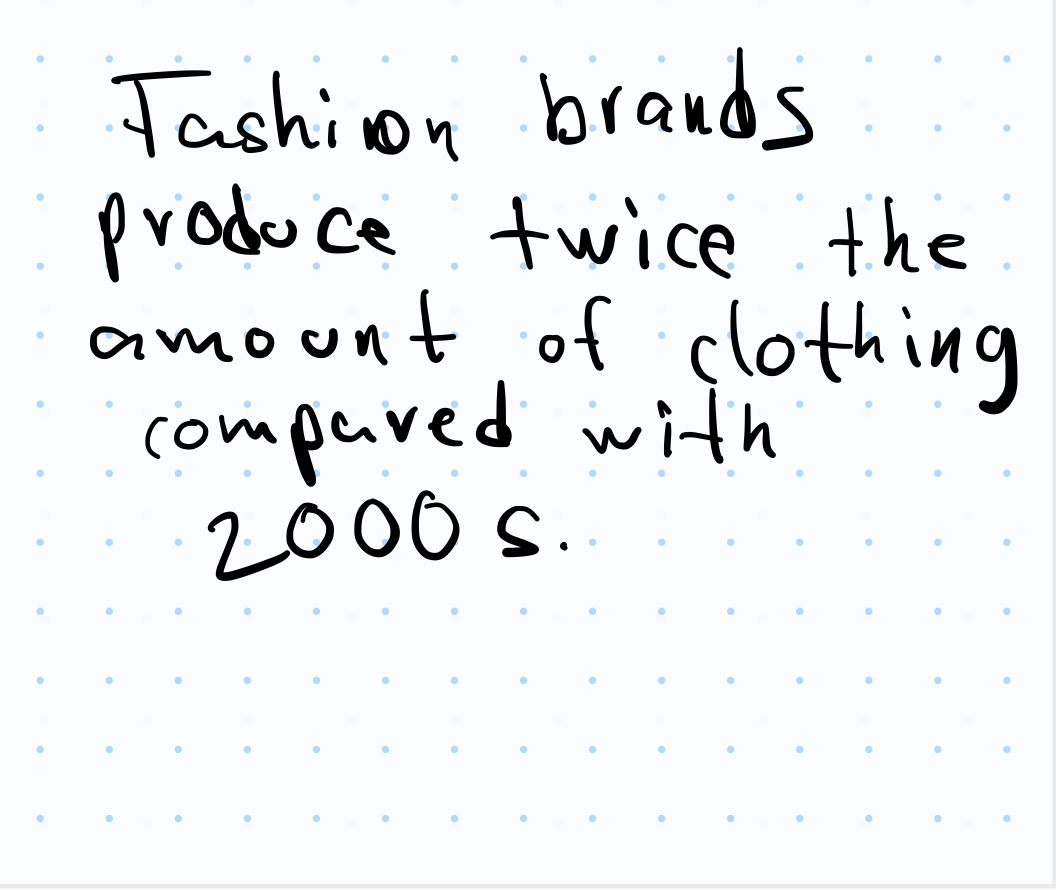 Fashion brands
produce twice the
amount of clothing
compared with
2000s.